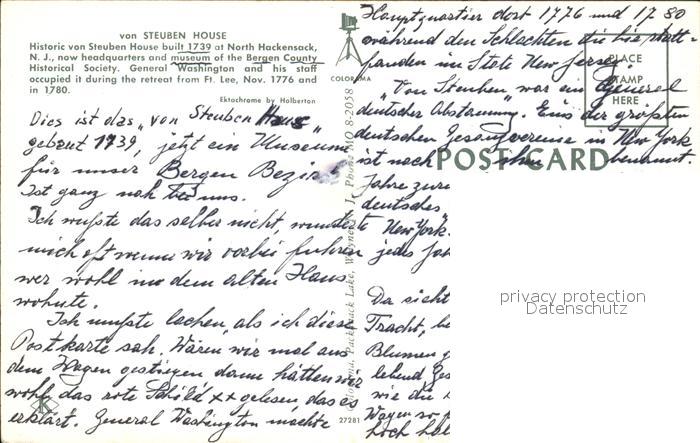 von STEUBEN HOUSE
Historic von Steuben House built 1739 at North Hackensack,
N. J., now headquarters and museum of the Bergen County
Historical Society. General Washington and his staff
occupied it during the retreat from Ft. Lee, Nov. 1776 and
in 1780.
Ektochrome by Holberton
Dies ist das „von Steuben Haus"
gebaut 1739, jetzt ein Museum
für unser Bergen Bezirk
Ist ganz nah bei uns.
Ich wußte das selber nicht, wunderte
mich oft wenn wir vorbei fuhren
wer wohl in dem alten Haus
wohnte.
Ich mußte lachen, als ich diese
Postkarte sah. Wären wir mal aus
dem Wagen gestiegen dann hätten wir
wohl das rote Schild xx gelesen das es
erklärt. General Washington machte
K
COLORAMA
Pack Lake, Wayne, N. J. Phone MO 8-2058
27281
Hauptquartier dort 1776 und 1780
während den Schlachten die hier statt-
fanden im State New Jersey.
„Von Steuben" war ein General
deutscher Abstammung. Eins der größten
deutschen Gesangvereine in New York
ist nach benannt.
PLACE
STAMP
HERE
POST CARD
Jahre
deutsches
New York.
jedes
Da sieht
Tracht,
Blumen
lebend
wie die
Wagen so
hoch
privacy protection
Datenschutz